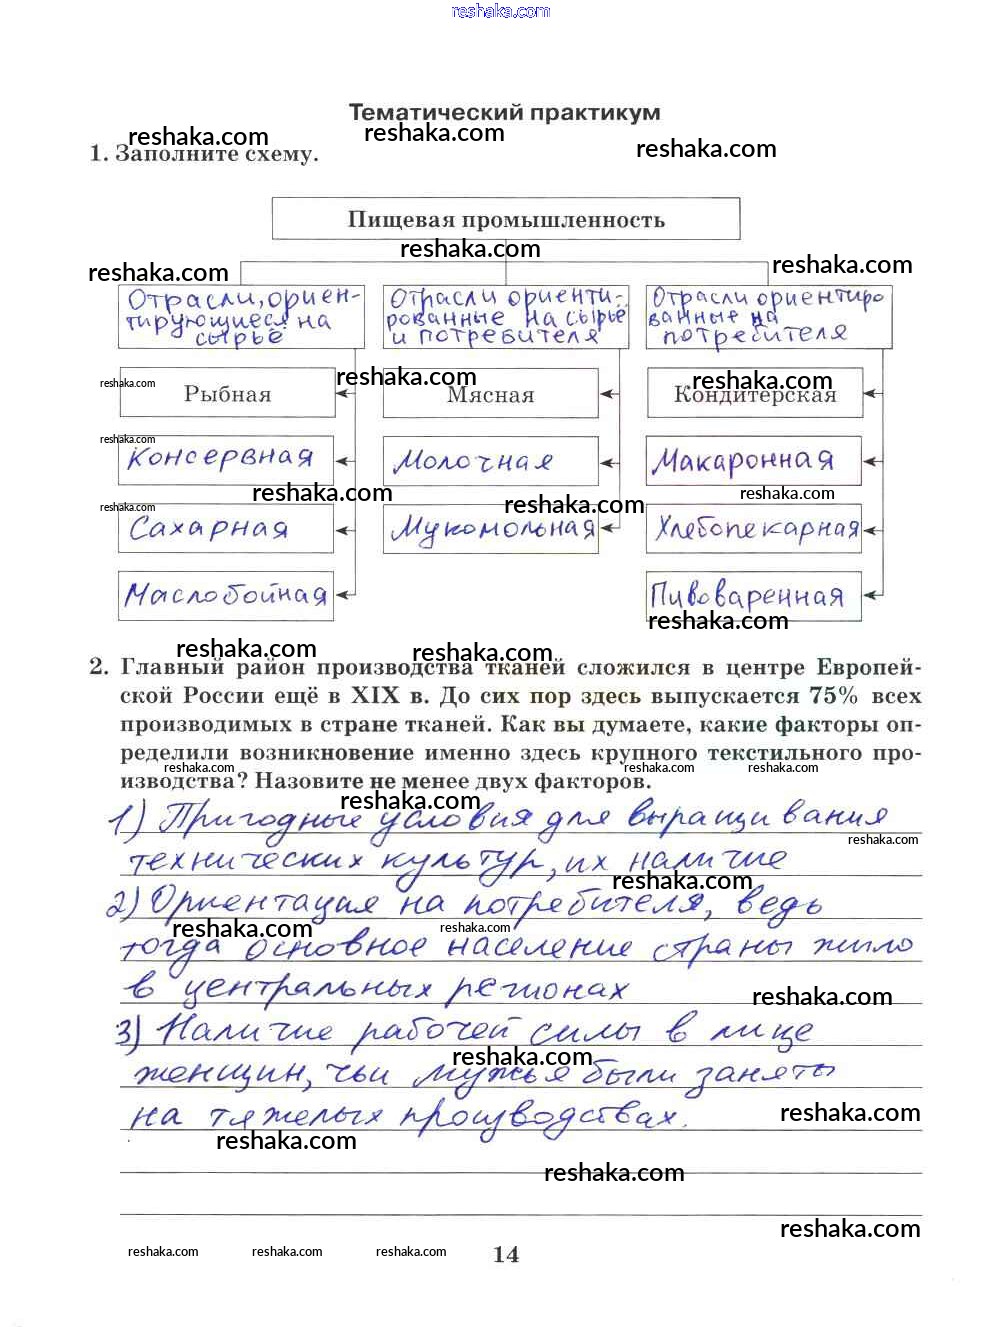 reshaka.com
Тематический практикум
reshaka.com reshaka.com reshaka.com
1. Заполните схему.
Пищевая промышленность
reshaka.com
reshaka.com reshaka.com
Отрасли, ориен-
тирующиеся на
сырьё
Отрасли ориенти-
рованные на сырьё
и потребителя
Отрасли ориентиро
ванные на
потребителя
reshaka.com reshaka.com reshaka.com
Рыбная Мясная Кондитерская
reshaka.com
Консервная Молочная Макаронная
reshaka.com reshaka.com reshaka.com
reshaka.com
Сахарная Мукомольная Хлебопекарная
Маслобойная Пивоваренная
reshaka.com
reshaka.com reshaka.com
2. Главный район производства тканей сложился в центре Европей-
ской России ещё в XIX в. До сих пор здесь выпускается 75% всех
производимых в стране тканей. Как вы думаете, какие факторы оп-
ределили возникновение именно здесь крупного текстильного про-
reshaka.com reshaka.com reshaka.com
изводства? Назовите не менее двух факторов.
reshaka.com
1) Пригодные условия для выращивания
reshaka.com
технических культур, их наличие
reshaka.com
2) Ориентация на потребителя, ведь
reshaka.com reshaka.com
тогда основное население страны жило
в центральных регионах
reshaka.com
3) Наличие рабочей силы в лице
reshaka.com
женщин, чьи мужья были заняты
на тяжелых производствах.
reshaka.com
reshaka.com
reshaka.com
reshaka.com
reshaka.com reshaka.com reshaka.com
14